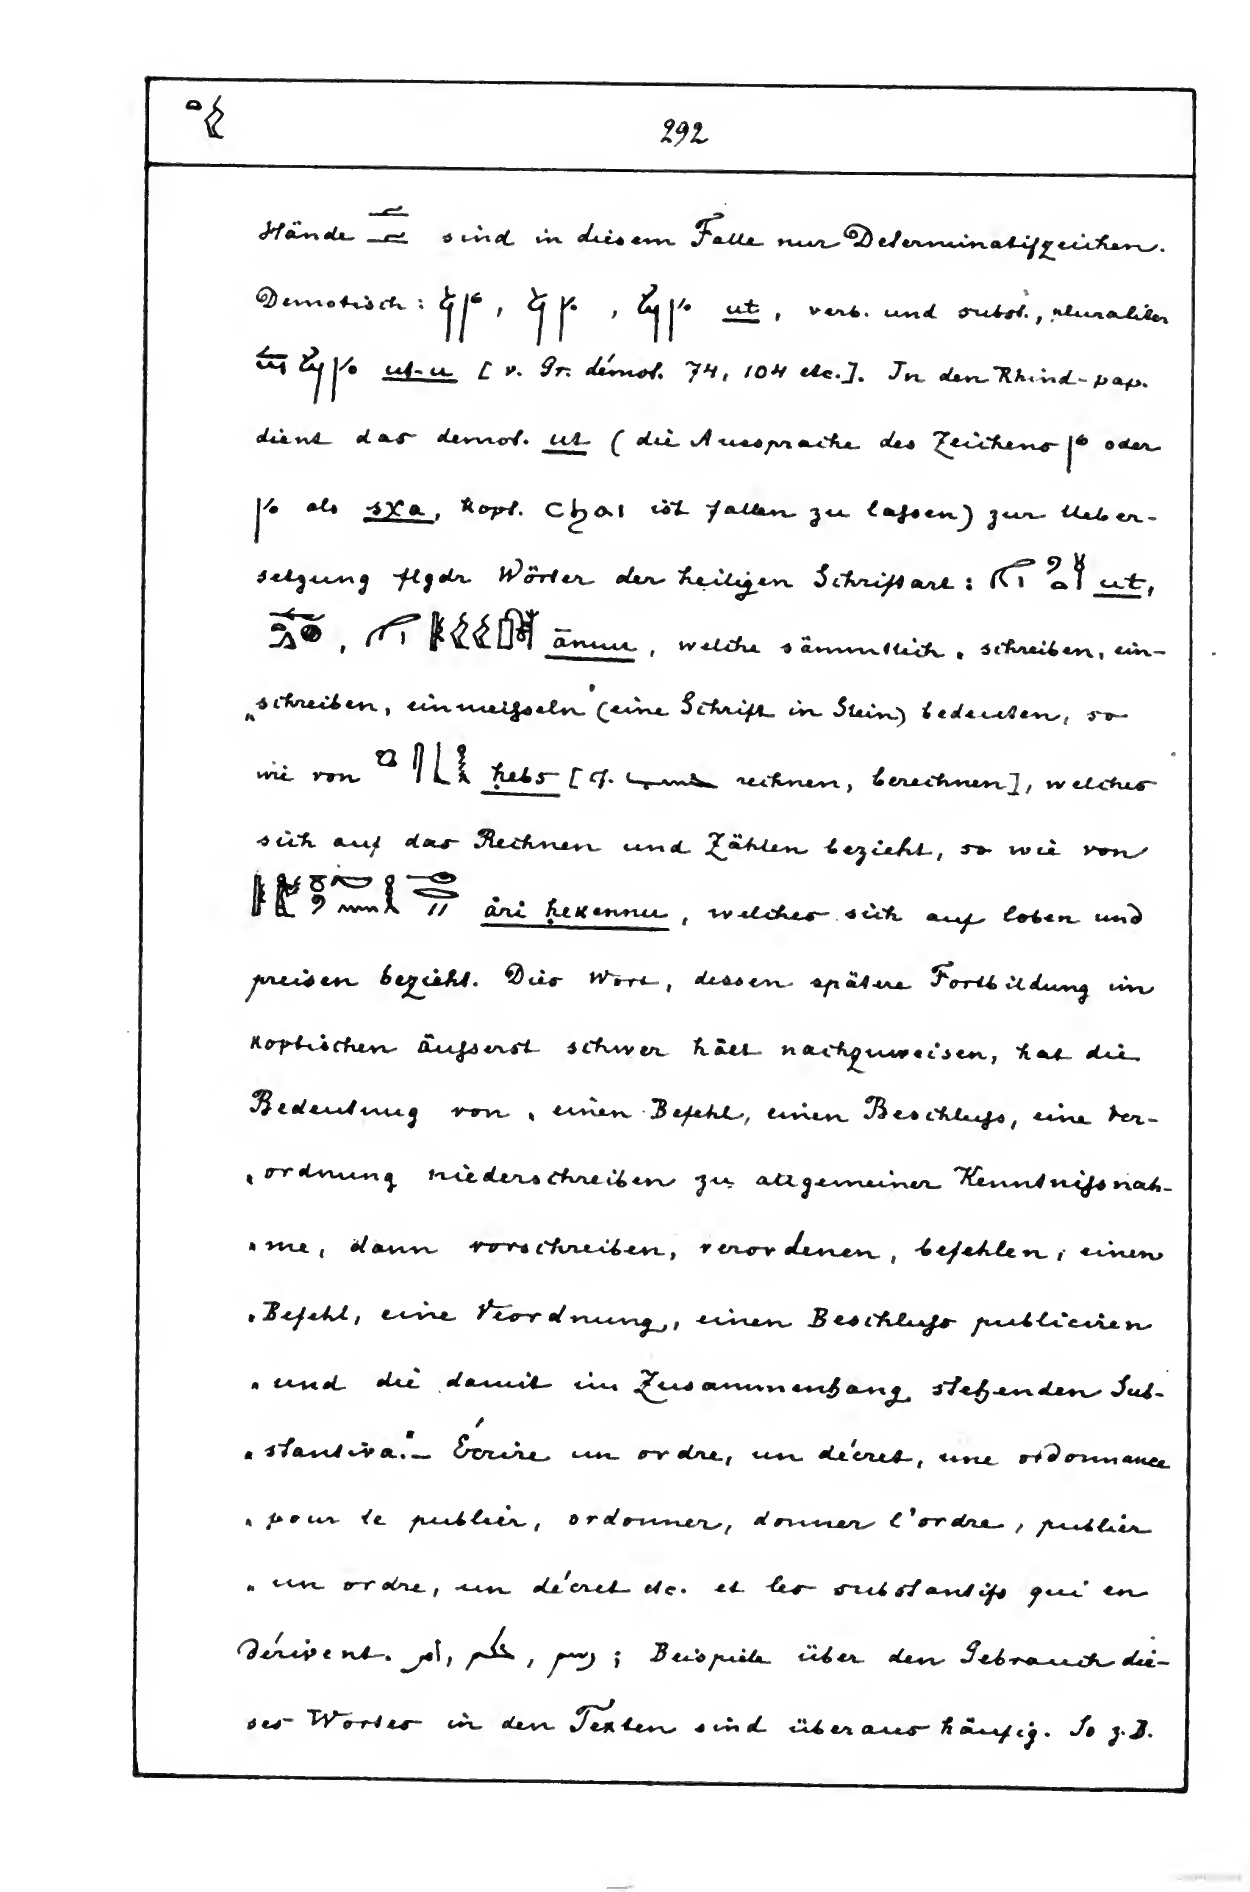 292
Hände sind in diesem Falle nur Determinatifzeichen.
Demotisch: , , ut, verb. und subst., pluraliter
ut-u [v. Gr. démot. 74, 104 etc.]. In den Rhind-pap.
dient das demot. ut (die Aussprache des Zeichens oder
als sχa, kopt. ⲥϧⲁⲓ ist fallen zu lassen) zur Ueber-
setzung flgdr Wörter der heiligen Schriftart: ut,
, ānuu, welche sämmtlich „schreiben, ein-
„schreiben, einmeifseln“ (eine Schrift in Stein) bedeuten, so
wie von ḥebs [cf. rechnen, berechnen], welches
sich auf das Rechnen und Zählen bezieht, so wie von
ȧri ḥekennu, welches sich auf loben und
preisen bezieht. Dies Wort, dessen spätere Fortbildung im
koptischen äufserst schwer hält nachzuweisen, hat die
Bedeutung von „einen Befehl, einen Beschlufs, eine Ver-
„ordnung niederschreiben zu allgemeiner Kenntnifsnah-
„me, dann vorschreiben, verordenen, befehlen, einen
„Befehl, eine Verordnung, einen Beschlufs publiciren
„und die damit im Zusammenhang stehenden Sub-
„stantiva.“ – Écrire un ordre, un décret, une ordonnance
„pour le publier, ordonner, donner l'ordre, publier
„un ordre, un décret etc. et les substantifs qui en
dérivent. أمر, حكم, رسم; Beispiele über den Gebrauch die-
ses Wortes in den Texten sind überaus häufig. So z.B.